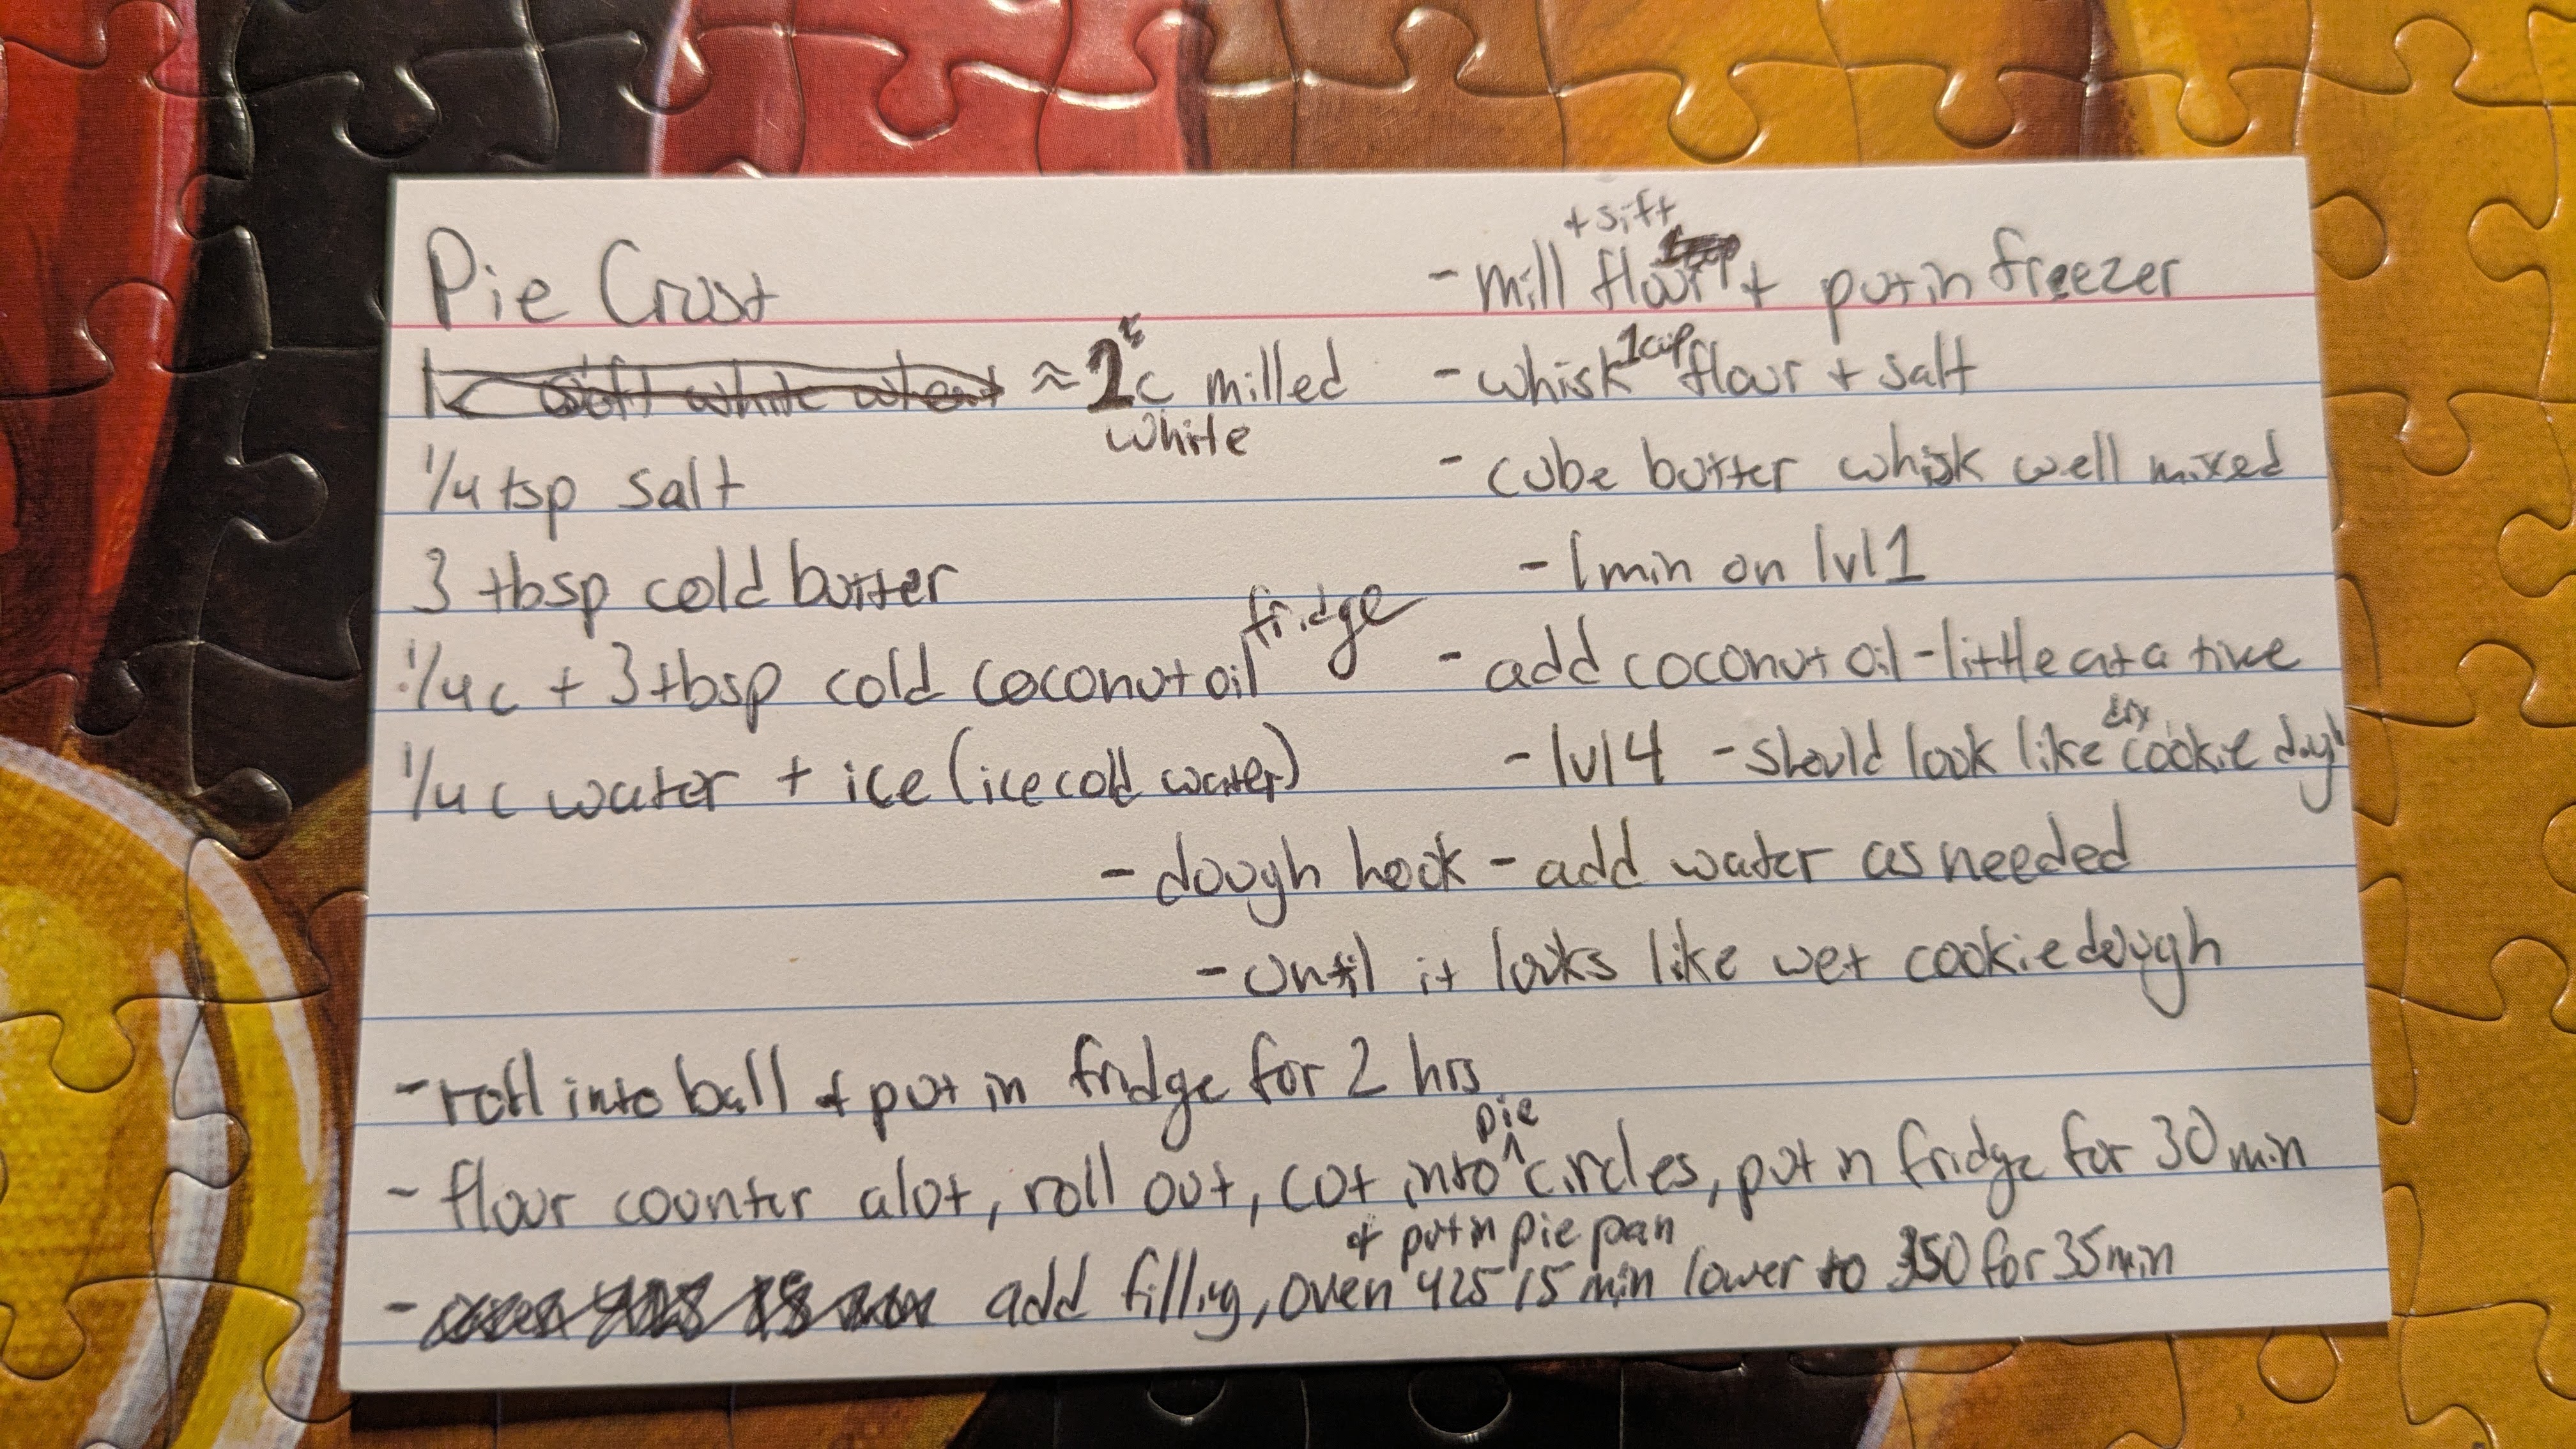 Pie Crust
≈ 2 c milled
white
1/4 tsp salt
3 tbsp cold butter
1/4 c + 3 tbsp cold coconut oil fridge
1/4 c water + ice (ice cold water)
+ sift
- mill flour + put in freezer
- whisk 1 cup flour + salt
- cube butter whisk well mixed
- 1 min on lvl 1
- add coconut oil - little at a time
- lvl 4 - should look like dry cookie dough
- dough hook - add water as needed
- until it looks like wet cookie dough
- roll into ball + put in fridge for 2 hrs
pie
- flour counter alot, roll out, cut into ^ circles, put in fridge for 30 min
+ put in pie pan
- add filling, oven 425 15 min lower to 350 for 35 min